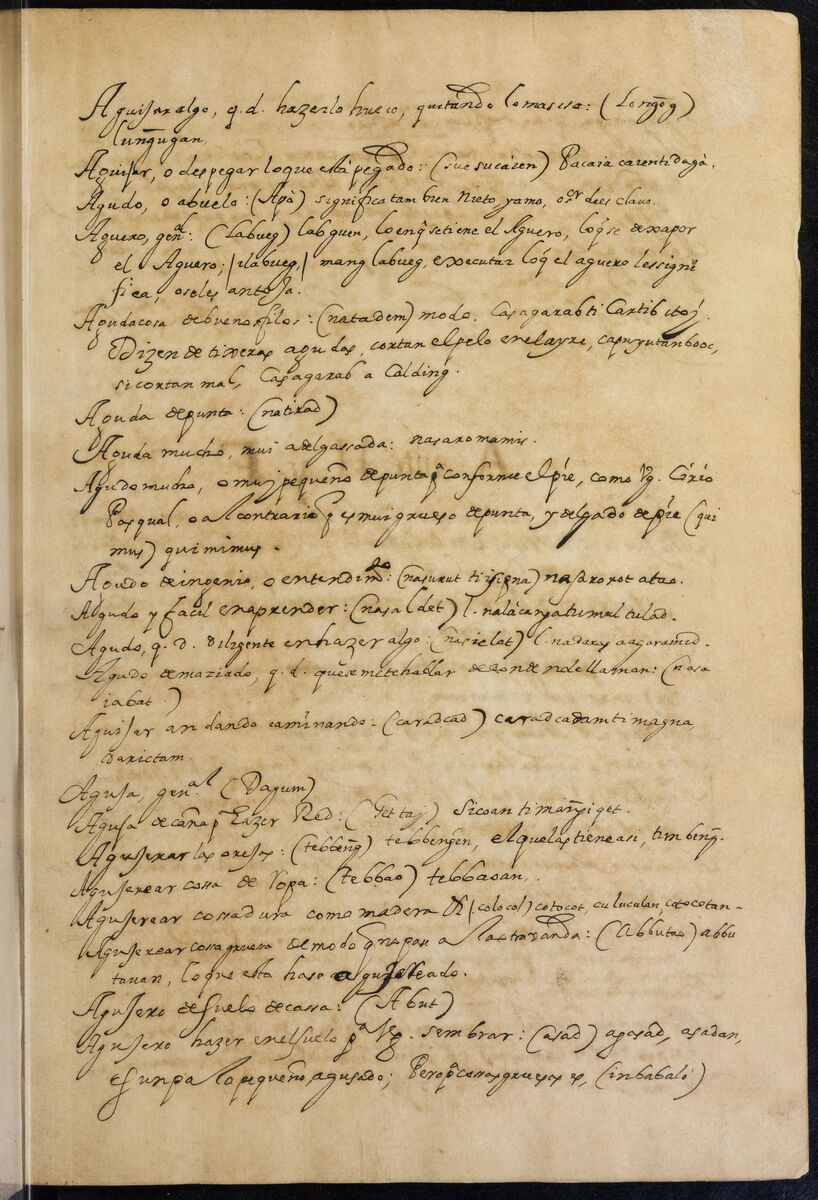 Aguisar algo, q.d. hazerlo hueco, quitando lo mas isa: (Longog)
lungugan.
Aguisar, o despegar lo que està pegado: (sucsucàren) Pacaia carentidagà.
Agudo, o abuelo: (Apò) significa tambien Nieto, yamo, o sor. de esclavo.
Aguero, genal: (Labueg) labguen, lo enq̃ se tiene el Aguero, loq̃ se dexa por
el Aguero; /ilabueg,/ mang labueg, executar loq̃ el aguero les signi
fica, o seles antoja.
Aguda cosa de buenos filos: (natadem) modo. Casagarabti Cartib itoj.
Dizen de tixeras agudas, cortan el pelo en el ayre, capuyutanbooc,
si cortan mal, Casagarab a Calding.
Aguda de punta: (natirad)
Aguda mucho, mui adelgassada: nasaromamis.
Agudo mucho, o muj pequeño de punta pa conforme el pie, como Vg. Cirio
Pasqual, o al contrario q̃ es mui grueso de punta, y delgado de pie (qui
mus) quimimus.
Agudo de ingenio, o entendimto: (nasurut ti isipna) nasarorot a tao.
Agudo y facil en aprender: (nasaldet) l. nalàcanga tumultulad.
Agudo, q. d. diligente en hazer algo: (nasiclat) l. nadaras a agaramid.
Agudo demaziado, q. d. que se mite hablar de donde nde llaman: (nasa
iabat)
Aguisar andando caminando: (caradcad) caradcadamti magna,
darictam.
Aguja, genal (Dagum)
Aguja de caña pa hazer Red: (Gettaj) Sicoanti mangiget.
Agujerar las orejas: (tebbeng) tebbengen, el que las tiene asi, timbeng.
Agujerear cosa de ropa: (tebbao) tebbaoan.
Agujerear cosa dura como madera &c (colocol) cotocot, culuculan, cotocotan-
Agujerear cosa gruesa de modo q̃ no pase a la otra vanda: (Abbutao) abbu
tauan, lo que esta hase agujereado.
Agujero de suelo de cassa: (Abut)
Agujero hazer en el suelo pa Vg. sembrar: (asad) agasad, asadan,
es un palo pequeño, agusado; Pero pa cosas gruesas es, (inbabalò)